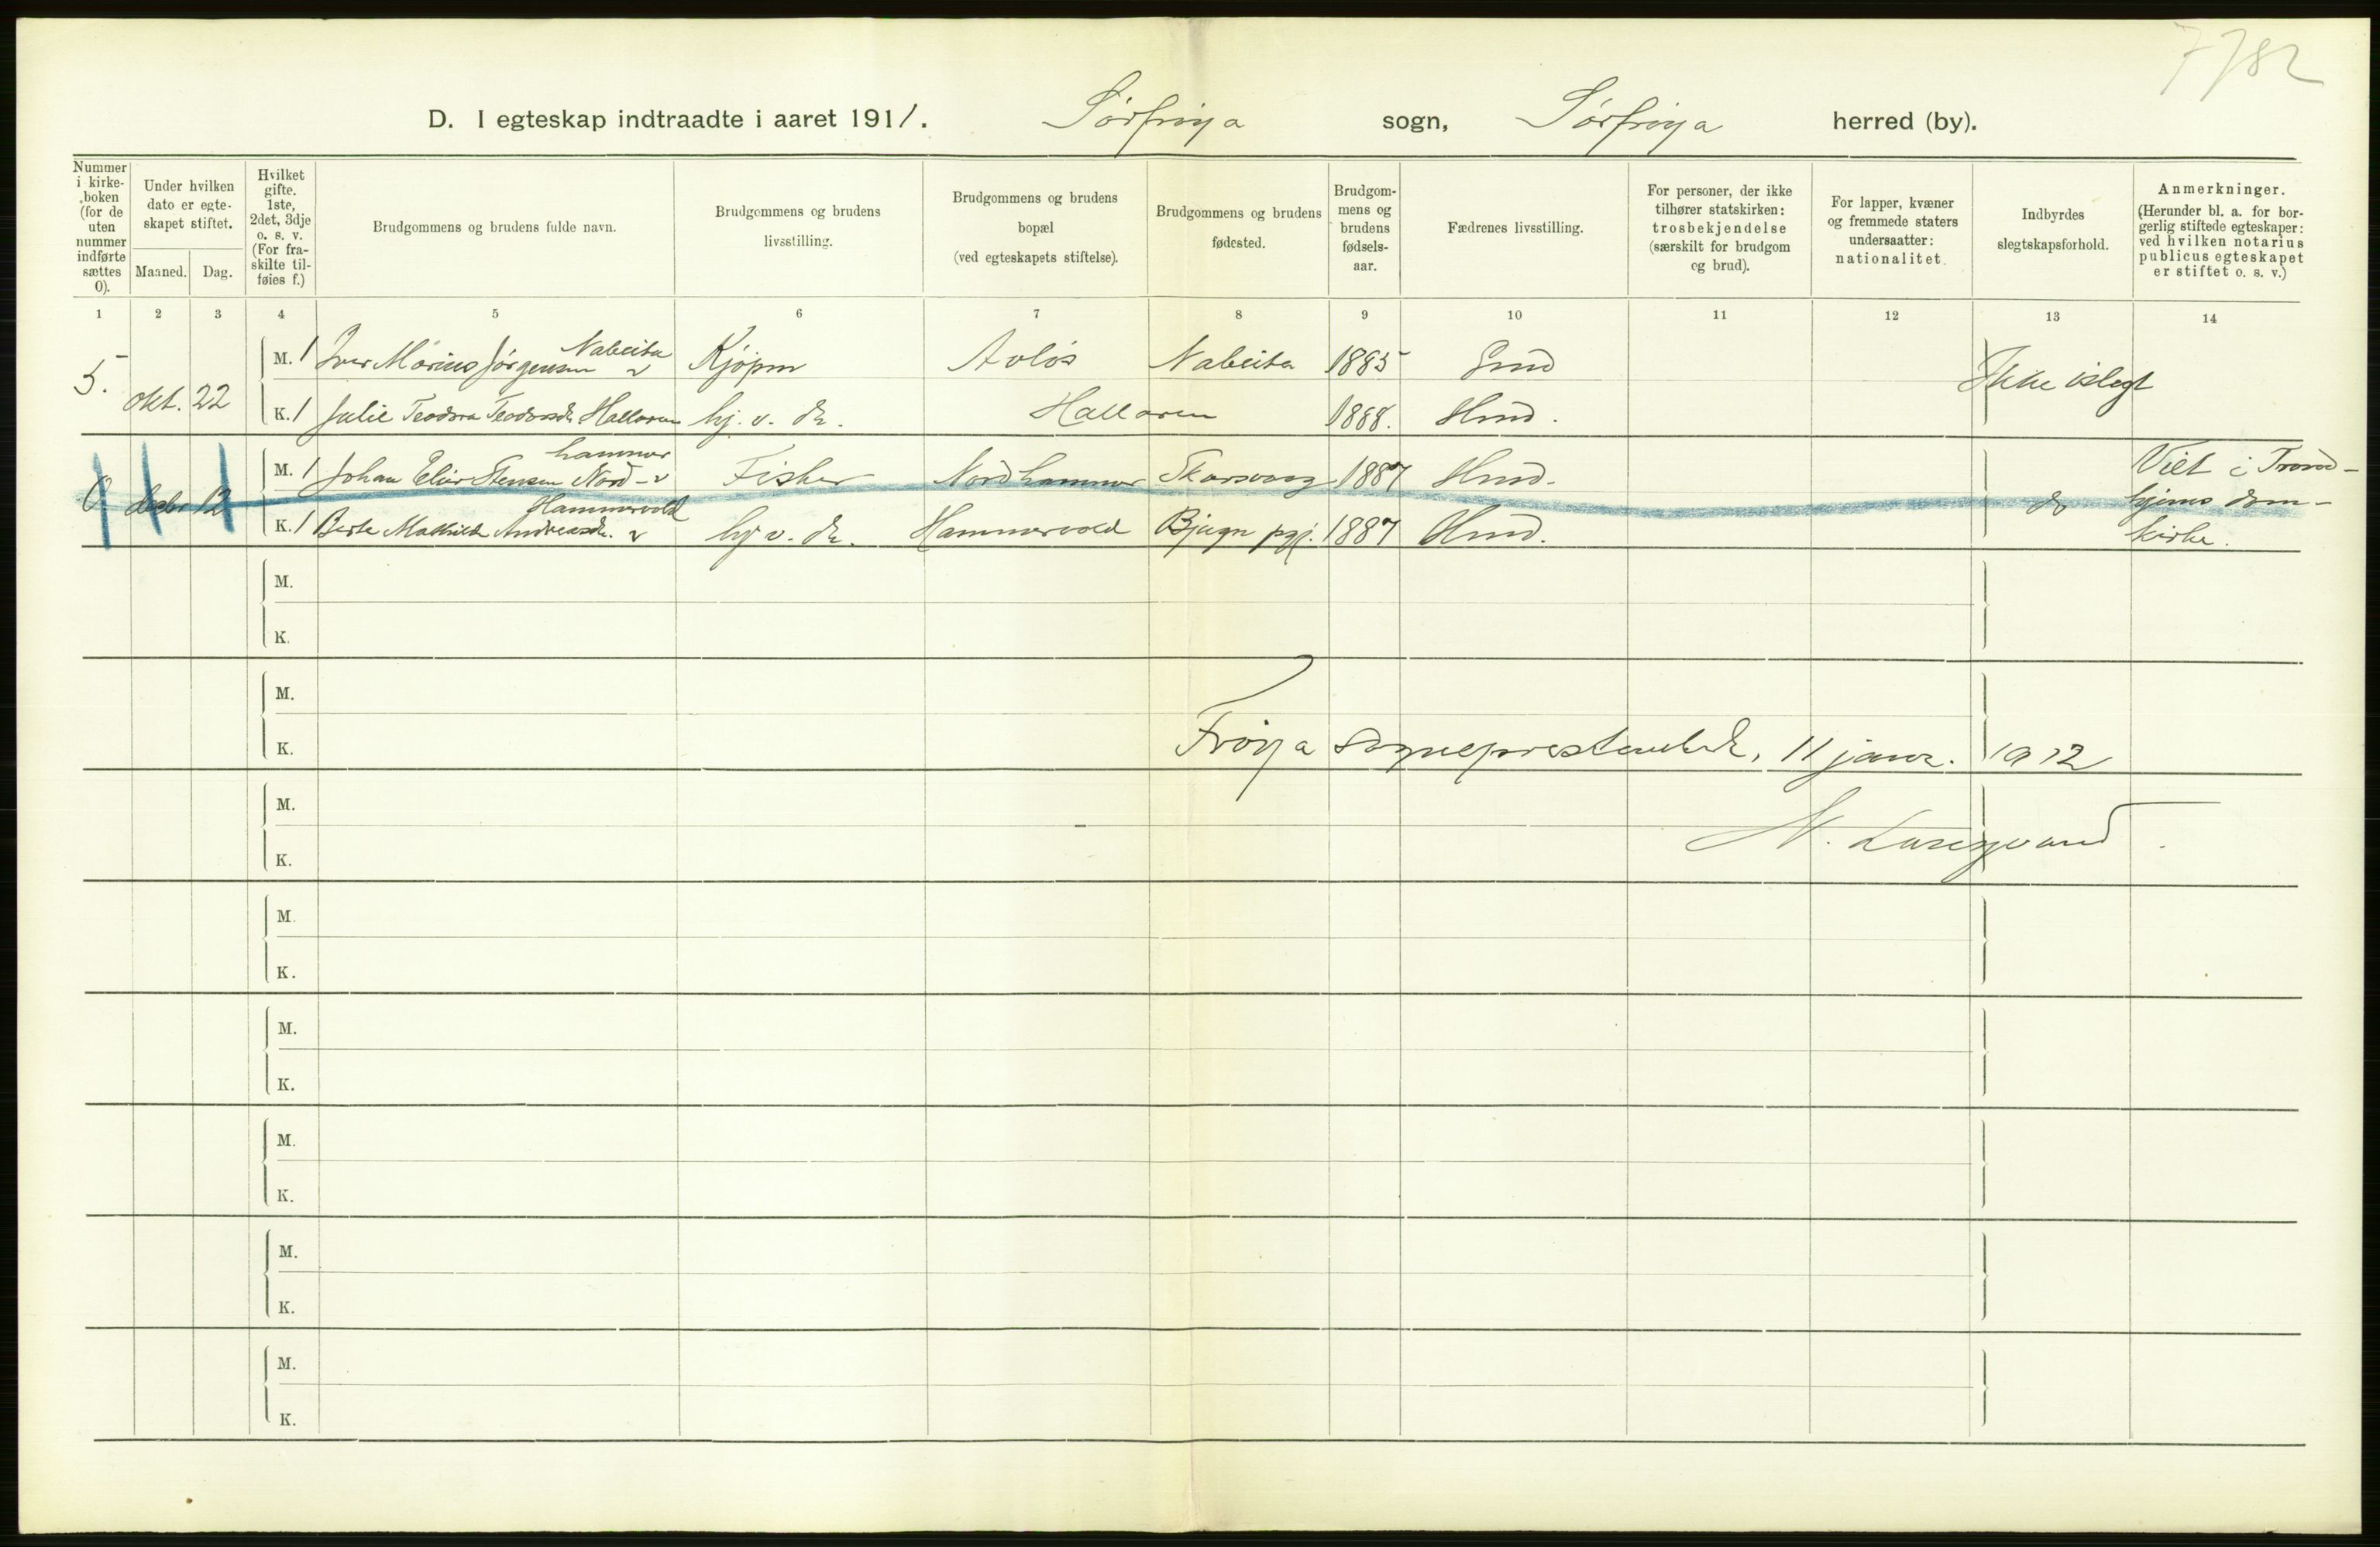 7782
D. I egteskap indtraadte i aaret 1911. Sørfrøya sogn, Sørfrøya herred (by).
Nummer i kirke-boken (for de uten nummer indførte sættes 0).
Under hvilken dato er egte-skapet stiftet.
Maaned. Dag.
Hvilket gifte. 1ste, 2det, 3dje o. s. v. (For fra-skilte til-føies f.)
Brudgommens og brudens fulde navn.
Brudgommens og brudens livsstilling.
Brudgommens og brudens bopæl (ved egteskapets stiftelse).
Brudgommens og brudens fødested.
Brudgom-mens og brudens fødsels-aar.
Fædrenes livsstilling.
For personer, der ikke tilhører statskirken: trosbekjendelse (særskilt for brudgom og brud).
For lapper, kvæner og fremmede staters undersaatter: nationalitet.
Indbyrdes slegtskapsforhold.
Anmerkninger. (Herunder bl. a. for bor-gerlig stiftede egteskaper: ved hvilken notarius publicus egteskapet er stiftet o. s. v.)
1 2 3 4 5 6 7 8 9 10 11 12 13 14
5. okt. 22
M. 1 Iver Marius Jørgensen Nabeita Kjøpm Avløs Nabeita 1885 Grnd Ikke islegt
K. 1 Julie Teodora Teodorsdr. Hallaren hj. v. dr. Hallaren 1888. Hmd.
0 desbr 12
M. 1 Johan Elier Stensen Nord-hammer Fisker Nordhammer 1887 Hmd. do Viet i Trond-hjems dom-kirke.
K. 1 Berte Mathilde Andreasdr. Hammervold hj v. dr. Hammervold Bjugn pgj. 1887 Hmd.
M.
K.
M.
K.
Frøya sogneprestembede, 11 janr. 1912
M.
K.
M.
K.
M.
K.
M.
K.
M.
K.
M.
K.